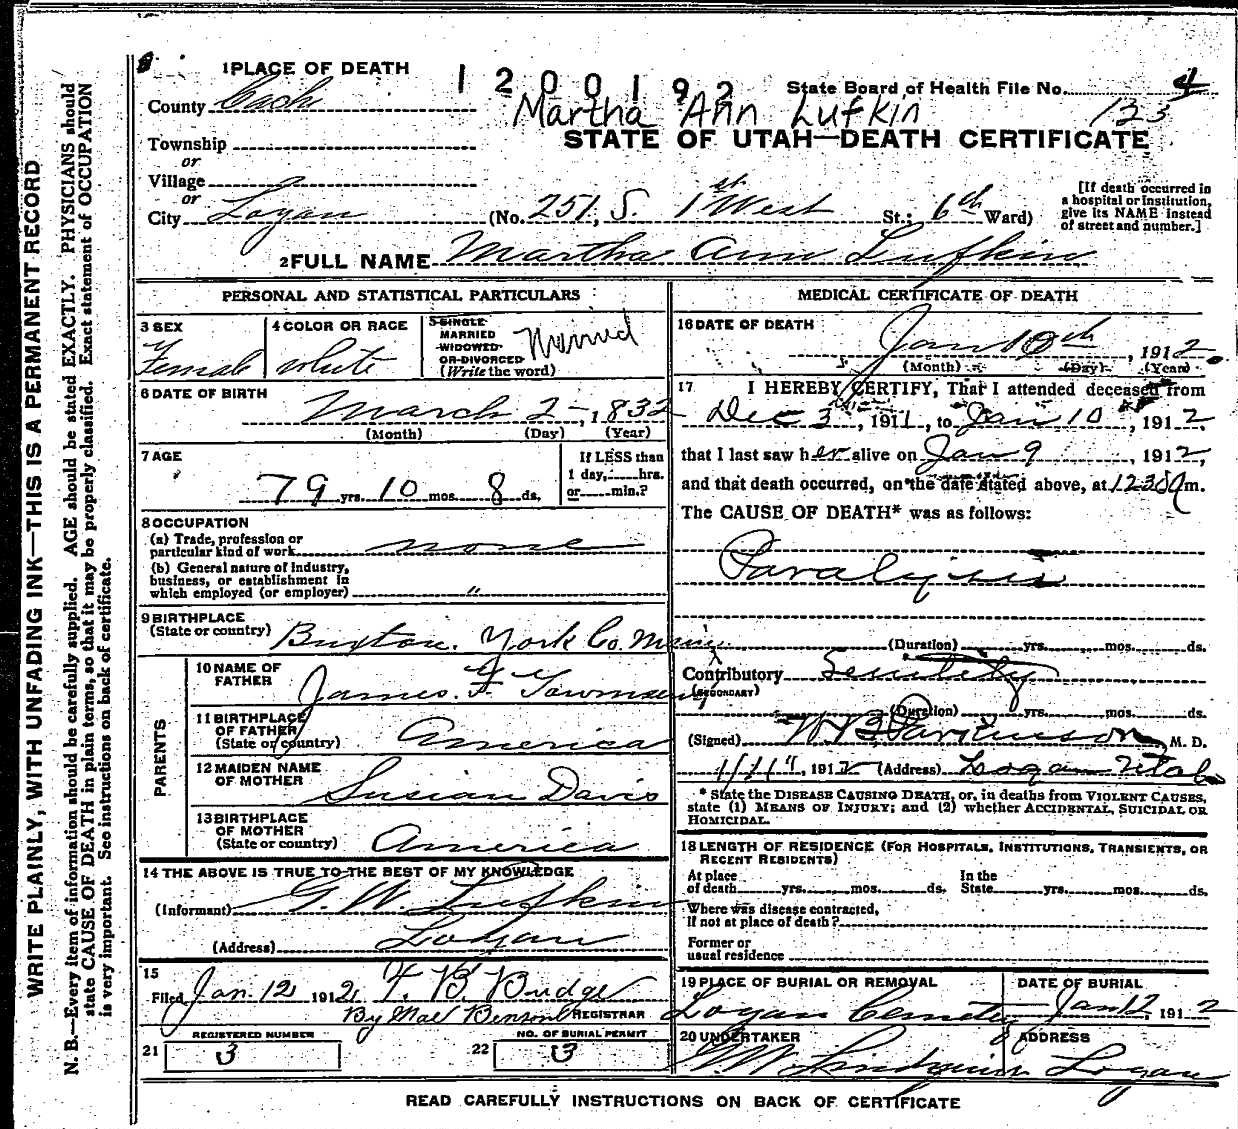 1 PLACE OF DEATH
1200192
State Board of Health File No. 4
County Cach
Martha Ann Lufkin 123
STATE OF UTAH—DEATH CERTIFICATE
Township
or
Village
or
City Logan (No. 251, S. 1st West St.; 6th Ward)
[If death occurred in
a hospital or institution,
give its NAME instead
of street and number.]
2 FULL NAME Martha Ann Lufkin
PERSONAL AND STATISTICAL PARTICULARS
3 SEX
Female
4 COLOR OR RACE
White
5 SINGLE
MARRIED
WIDOWED
OR DIVORCED
(Write the word)
Married
6 DATE OF BIRTH
March 2, 1832
(Month) (Day) (Year)
7 AGE
79 yrs. 10 mos. 8 ds.
If LESS than
1 day, hrs.
or min.?
8 OCCUPATION
(a) Trade, profession or
particular kind of work none
(b) General nature of industry,
business, or establishment in
which employed (or employer) "
9 BIRTHPLACE
(State or country) Buxton. York Co. Maine
PARENTS
10 NAME OF
FATHER James. F. Townsend
11 BIRTHPLACE
OF FATHER
(State or country) America
12 MAIDEN NAME
OF MOTHER Susian Davis
13 BIRTHPLACE
OF MOTHER
(State or country) America
14 THE ABOVE IS TRUE TO THE BEST OF MY KNOWLEDGE
(Informant) G. W. Lufkin
(Address) Logan
15
Filed Jan. 12 1912 F. B. Budge
By Mae Benson REGISTRAR
REGISTERED NUMBER NO. OF BURIAL PERMIT
21 3 22 3
MEDICAL CERTIFICATE OF DEATH
16 DATE OF DEATH
Jan 10th, 1912
(Month) (Day) (Year)
17 I HEREBY CERTIFY, That I attended deceased from
Dec 3, 1911, to Jan 10, 1912,
that I last saw her alive on Jan 9, 1912,
and that death occurred, on the date stated above, at 1230 a m.
The CAUSE OF DEATH* was as follows:
Paralysis
(Duration) yrs. mos. ds.
Contributory Senility
(SECONDARY)
(Duration) yrs. mos. ds.
(Signed) W B Parkinson, M. D.
1/11, 1912 (Address) Logan Utah
* State the DISEASE CAUSING DEATH, or, in deaths from VIOLENT CAUSES,
state (1) MEANS OF INJURY; and (2) whether ACCIDENTAL, SUICIDAL OR
HOMICIDAL.
18 LENGTH OF RESIDENCE (FOR HOSPITALS, INSTITUTIONS, TRANSIENTS, OR
RECENT RESIDENTS)
At place In the
of death yrs. mos. ds. State yrs. mos. ds.
Where was disease contracted,
If not at place of death?
Former or
usual residence
19 PLACE OF BURIAL OR REMOVAL
Logan Cemetery
DATE OF BURIAL
Jan 12, 1912
20 UNDERTAKER
Lindquist
ADDRESS
Logan
READ CAREFULLY INSTRUCTIONS ON BACK OF CERTIFICATE
WRITE PLAINLY, WITH UNFADING INK—THIS IS A PERMANENT RECORD
N. B.—Every item of information should be carefully supplied. AGE should be stated EXACTLY. PHYSICIANS should
state CAUSE OF DEATH in plain terms, so that it may be properly classified. Exact statement of OCCUPATION
is very important. See instructions on back of certificate.